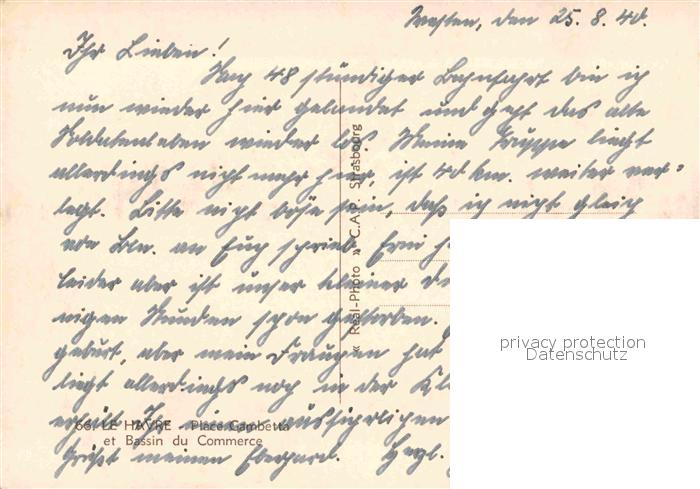 Westen, den 25. 8. 40.
Ihr Lieben!
Nach 48 stündiger Bahnfahrt bin ich
nun wieder hier gelandet und geht das alte
Soldatenleben wieder los. Meine Truppe liegt
allerdings nicht mehr hier, ist 40 km. weiter ver-
legt. Bitte nicht böse sein, daß ich nicht gleich
von Bln. an Euch schrieb. Erni
leider aber ist unser kleiner
nigen Stunden schon gestorben.
geburt, aber mein Frauchen hat
liegt allerdings noch in der
erhält Ihr ausführlichen
Grüßt meinen Eberhard. Herzl.
« Real-Photo » C.A.P. Strasbourg
66. LE HAVRE - Place Gambetta
et Bassin du Commerce
privacy protection
Datenschutz